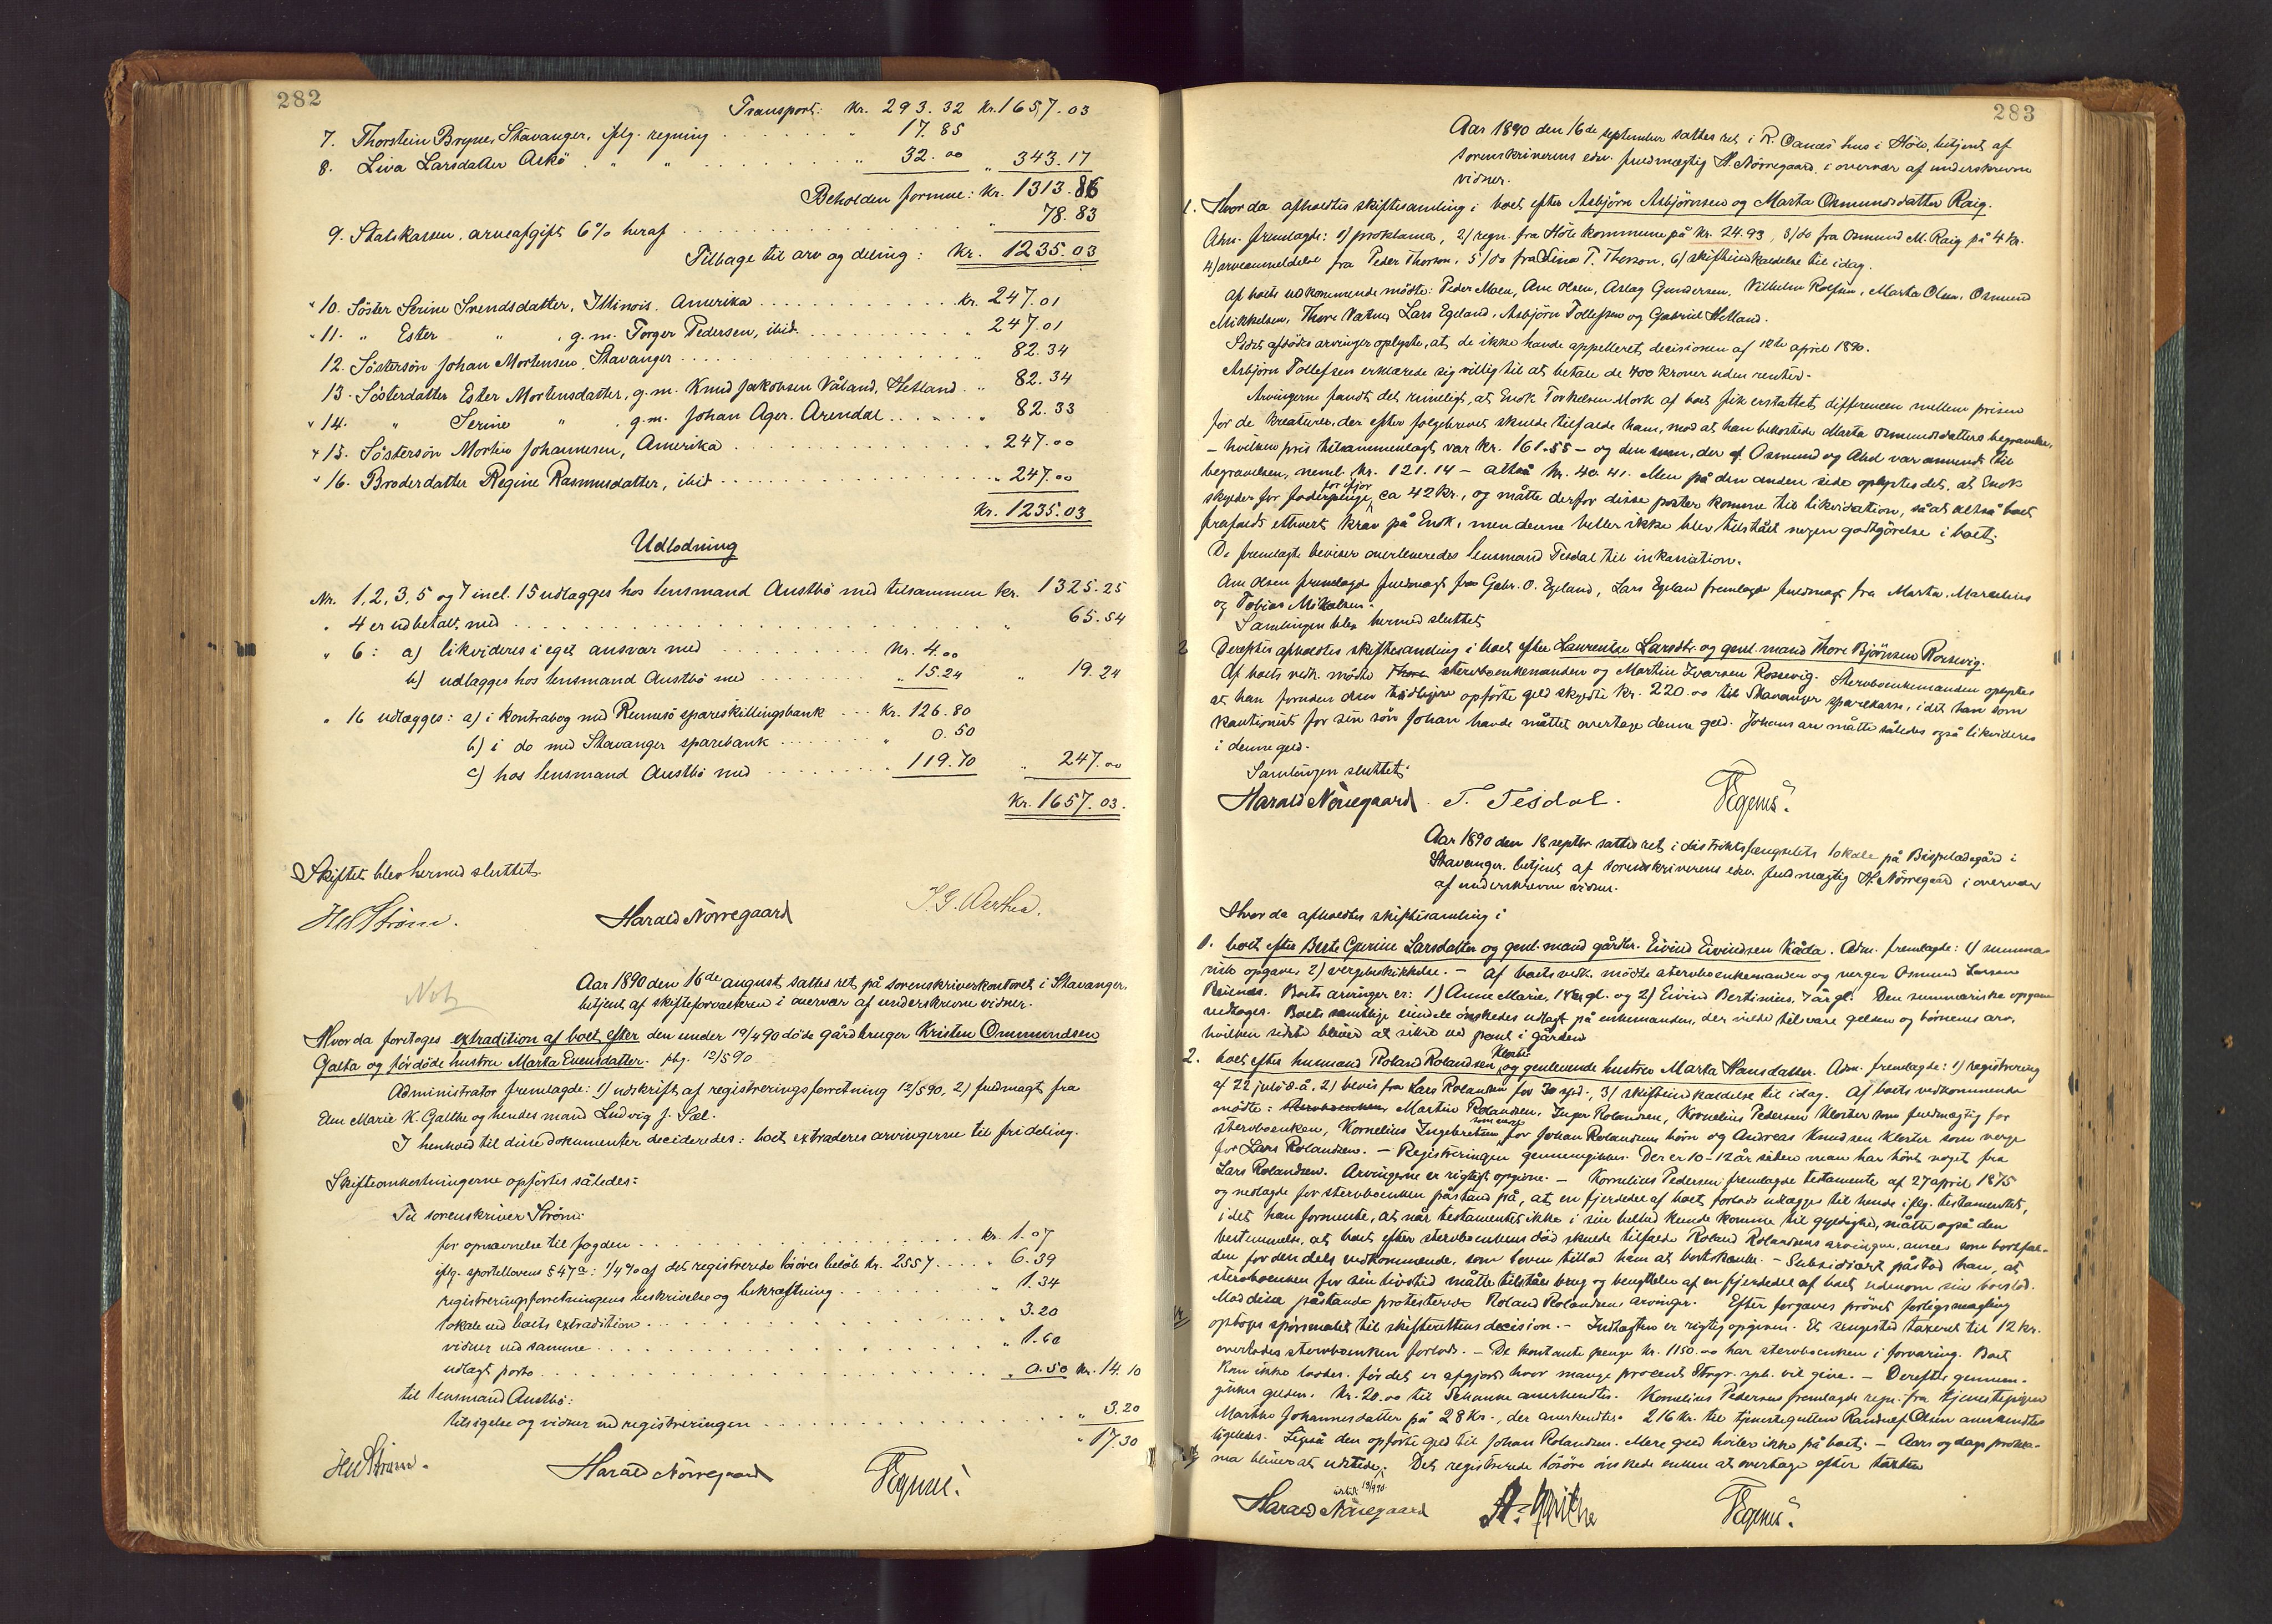 282
Transport: Kr. 293.32 Kr. 1657.03
7. Thorstein Bryne, Stavanger, iflg. regning . . . " 17.85
8. Liva Larsdatter Askö . " " . . . " 32.00 " 343.17
Beholden formue: Kr. 1313.86
9. Statskassen, arveafgift 6% heraf . . . " 78.83
Tilbage til arv og deling: Kr. 1235.03
10. Söster Serine Svendsdatter, Illinois, Amerika . . . Kr. 247.01
11. " Ester " , g.m. Torger Pedersen, ibid. . . . " 247.01
12. Söstersön Johan Mortensen, Stavanger . . . " 82.34
13. Sösterdatter Ester Mortensdatter, g.m. Knud Jakobsen Våland, Hetland . " 82.34
14. " Serine " , g.m. Johan Ager. Arendal . . . " 82.33
15. Söstersön Mortin Johannesen, Amerika . . . " 247.00
16. Broderdatter Regine Rasmusdatter, ibid . . . " 247.00
Kr. 1235.03
Udlodning
Nr. 1, 2, 3, 5 og 7 incl. 15 udlægges hos lensmand Austbö med tilsammen Kr. 1325.25
" 4 er udbetalt med . . . " 65.54
" 6: a) likvideres i eget ansvar med . . . Kr. 4.00
b) udlægges hos lensmand Austbö med . . . " 15.24 " 19.24
" 16 udlægges: a) i kontrabog med Rennesö spareskillingsbank . . . Kr. 126.80
b) i do med Stavanger sparebank . . . " 0.50
c) hos lensmand Austbö med . . . " 119.70 " 247.00
Kr. 1657.03.
Skiftet blev hermed sluttet.
Harald Nörregaard
Notz
Aar 1890 den 16de august sattes ret på sorenskriverkontoret i Stavanger,
betjent af skifteforvalteren i overvær af underskrevne vidner.
Hvorda foretoges extradition af boet efter den under 19/4 90 döde gårdbruger Kristen Ommundsen
Galta og fördöde hustru Marta Evensdatter. pbg. 12/5 90
Administrator fremlagde: 1) udskrift af registreringsforretning 12/5 90, 2) fuldmagt fra
Elen Marie K. Galthe og hendes mand Ludvig J. Sæl.
I henhold til disse dokumenter decideredes: boet extraderes arvingerne til frideling.
Skifteomkostningerne opförtes således:
Til sorenskriver Ström:
for opnævnelse til fogden . . . Kr. 1.07
iflg. sportellovens § 47a: 1/4% af det registrerede lösöres belöb Kr. 2557 . . . " 6.39
registreringsforretningens beskrivelse og bekræftning . . . " 1.34
lokale ved boets extradition . . . " 3.20
vidner ved samme . . . " 1.60
udlagt porto . . . " 0.50 Kr. 14.10
til lensmand Austbö:
tilsigelse og vidner ved registreringen . . . " 3.20
" 17.30
Harald Nörregaard
283
Aar 1890 den 16de september sattes ret i R. Oanes hus i Höle, betjent af
sorenskriverens edsv. fuldmægtig H. Nörregaard, i overvær af underskrevne
vidner.
1. Hvorda afholdtes skiftesamling i boet efter Asbjörn Asbjörnsen og Marta Osmundsdatter Raig.
Adm. fremlagde: 1) proklama, 2) regn. fra Höle kommune på Kr. 24.93, 3) do fra Osmund M. Raig på 4 Kr.
4) arveanmeldelse fra Peder Thorson, 5) do fra Sina T. Thorson, 6) skifteindkaldelse til idag.
Af boets vedkommende mödte: Peder Moen, Ane Olsen, Aslag Gundersen, Vilhelm Rolfsen, Marta Olsen, Osmund
Mikkelsen, Thore Vatne, Lars Egeland, Asbjörn Tollefsen og Gabriel Hetland.
Sidst afdödes arvinger oplyste, at de ikke havde appelleret decisionen af 12te april 1890.
Asbjörn Tollefsen erklærede sig villig til at betale de 400 kroner uden renter.
Arvingerne fandt det rimeligt, at Enok Torkelsen Mork af boet fik erstattet differencen mellem prisen
for de kreaturer, der efter folgebrevet skulde tilfalde ham, mod at han bekostede Marta Osmundsdatters begravelse,
– hvilken pris tilsammenlagt var Kr. 161.55 – og den sum, der af Osmund og Abel var anvendt til
begravelsen, nemlig Kr. 121.14 – altså Kr. 40.41. Men på den anden side oplystes det, at Enok
skylder for foderpenge for ifjor ca 42 Kr., og måtte derfor disse poster komme til likvidation, så at altså boet
frafaldt ethvert krav på Enok, men denne heller ikke blev tilstået nogen godtgörelse i boet.
De fremlagte beviser overleveredes lensmand Tesdal til inkassation.
Ane Olsen fremlagde fuldmagt fra Gabr. O. Egeland, Lars Egeland fremlagde fuldmagt fra Marta, Marselius
og Tobias Mikalsen.
Samlingen blev hermed sluttet
2 Derefter afholdtes skiftesamling i boet efter Laurentse Larsdtr. og genl. mand Thore Björnsen Rossevig.
Af boets vedk. mödte Thore stervboenkemanden og Martin Ivarsen Rossevig. Stervboenkemanden oplyste
at han foruden den tidligere opförte geld skyldte Kr. 220.00 til Stavanger sparekasse, idet han som
kautionist for sin sön Johan havde måttet overtage denne geld. Johans arv måtte således også likvideres
i denne geld.
Samlingen sluttet.
Harald Nörregaard. T. Tesdal.
Aar 1890 den 18 septbr. sattes ret i distriktsfængselets lokale på Bispeladegård i
Stavanger, betjent af sorenskriverens edsv. fuldmægtig H. Nörregaard i overvær
af underskrevne vidner.
Hvorda afholdtes skiftesamling i
1. boet efter Berte Gurine Larsdatter og genl. mand gårdbr. Eivind Eivindsen Kåda. Adm. fremlagde: 1) summa-
risk opgave, 2) vergebeskikkelse. – Af boets vedk. mödte stervboenkemanden og vergen Osmund Larsen
Reienes. Boets arvinger er: 1) Anne Marie, 18 år gl. og 2) Eivind Bertinius, 7 år gl. Den summariske opgave
vedtoges. Boets samtlige eiendele önskedes udlagt på enkemanden, der vilde tilsvare gelden og börnenes arv,
hvilken sidste bliver at sikre ved pant i gården
2. boet efter husmand Roland Rolandsen Kloster og genlevende hustru Marta Hansdatter. Adm. fremlagde: 1) registrering
af 22 juli d.å. 2) bevis fra Lars Rolandsen for 30 spd., 3) skifteindkaldelse til idag. Af boets vedkommende
mödte: stervboenken, Martin Rolandsen, Inger Rolandsen, Kornelius Pedersen Kloster som fuldmægtig for
stervboenken, Kornelius Ingebretsen som verge for Johan Rolandsens börn og Andreas Knudsen Kloster som verge
for Lars Rolandsen. – Registreringen gennemgikkes. Der er 10–12 år siden man har hört noget fra
Lars Rolandsen. Arvingerne er rigtigt opgivne. – Kornelius Pedersen fremlagde testamente af 27 april 1875
og nedlagde for stervboenken påstand på, at en fjerdedel af boet forlods udlægges til hende iflg. testamentet,
idet han formente, at når testamentet ikke i sin helhed kunde komme til gyldighed, måtte også den
bestemmelse, at boet efter stervboenkens död skulde tilfalde Roland Rolandsens arvinger, ansees som bortfal-
den for den dels vedkommende, som loven tillod ham at bortskænke. – Subsidiært påstod han, at
stervboenken for sin livstid måtte tilståes brug og benyttelse af en fjerdedel af boet udenom sin boslod.
Mod disse påstande protesterede Roland Rolandsens arvinger. Efter forgæves prövet forligsmægling
optoges spörsmålet til skifterettens decision. – Indtægten er rigtig opgiven. Et sengested taxeret til 12 Kr.
overlodes stervboenken forlods. – De kontante penge Kr. 1150.00 har stervboenken i forvaring. Boet
kan ikke loddes, för det er afgjort hvor mange procent Stvgr. spb. vil give. – Derefter gennem-
gikkes gelden. Kr. 20.00 til Schanke anerkendtes. Kornelius Pedersen fremlagde regn. fra tjenestepigen
Marthe Johannesdatter på 28 Kr., der anerkendtes. 216 Kr. til tjenestegutten Randulf Olsen anerkendtes
ligeledes. Ligeså den opförte geld til Johan Rolandsen. Mere geld hviler ikke på boet. – Aars og dags prokla-
ma bliver at udstede. Det registrerede lösöre önskede enken at overtage efter taxten
Harald Nörregaard